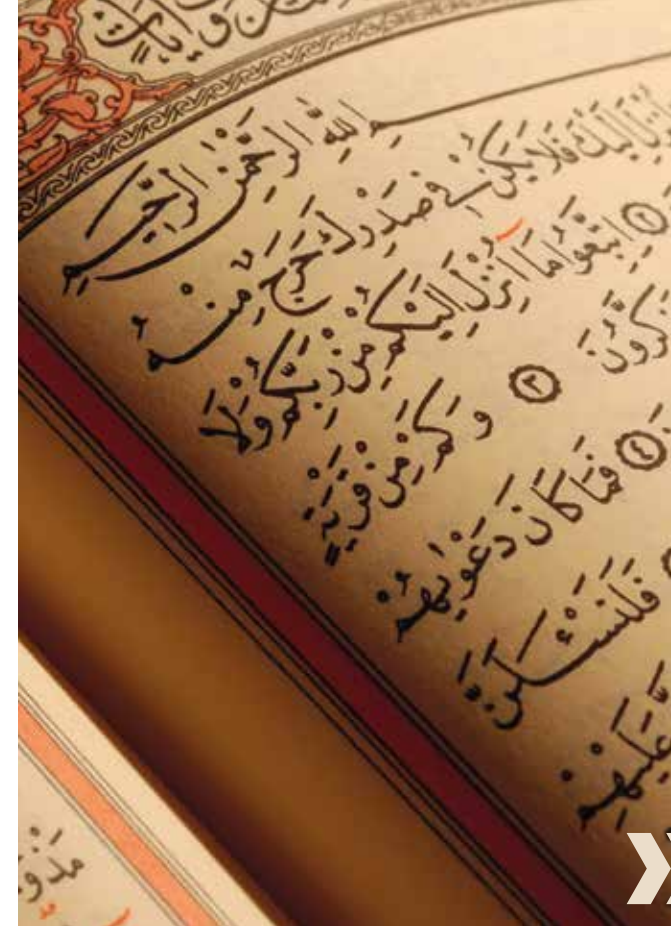 اللهِ الرَّحْمٰنِ الرَّحِيمِ
اُنْزِلَ اِلَيْكَ فَلَا يَكُنْ فِي صَدْرِكَ حَرَجٌ مِنْهُ
٢ اِتَّبِعُوا مَا اُنْزِلَ اِلَيْكُمْ مِنْ رَبِّكُمْ وَلَا
٣ وَكَمْ مِنْ قَرْيَةٍ
٤ فَمَا كَانَ دَعْوٰيهُمْ
فَلَنَسْـَٔلَنَّ
عَلَيْهِمْ